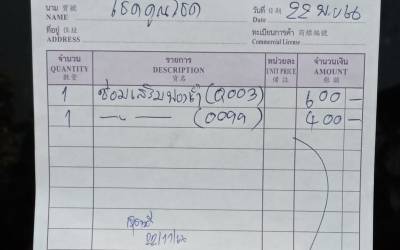 นาม 寶號 เชิดคูณโชค วันที่ 日期 22 พ.ย 66
NAME Date
ที่อยู่ 住址 ทะเบียนการค้า 商標編號
ADDRESS Commercial License
จำนวน รายการ หน่วยละ จำนวนเงิน
QUANTITY DESCRIPTION UNIT PRICE AMOUNT
數量 貨名 備注 銀額
1 ซ่อมเสริม (0003) 600 -
1 — " — (0099) 400 -
22/11/66